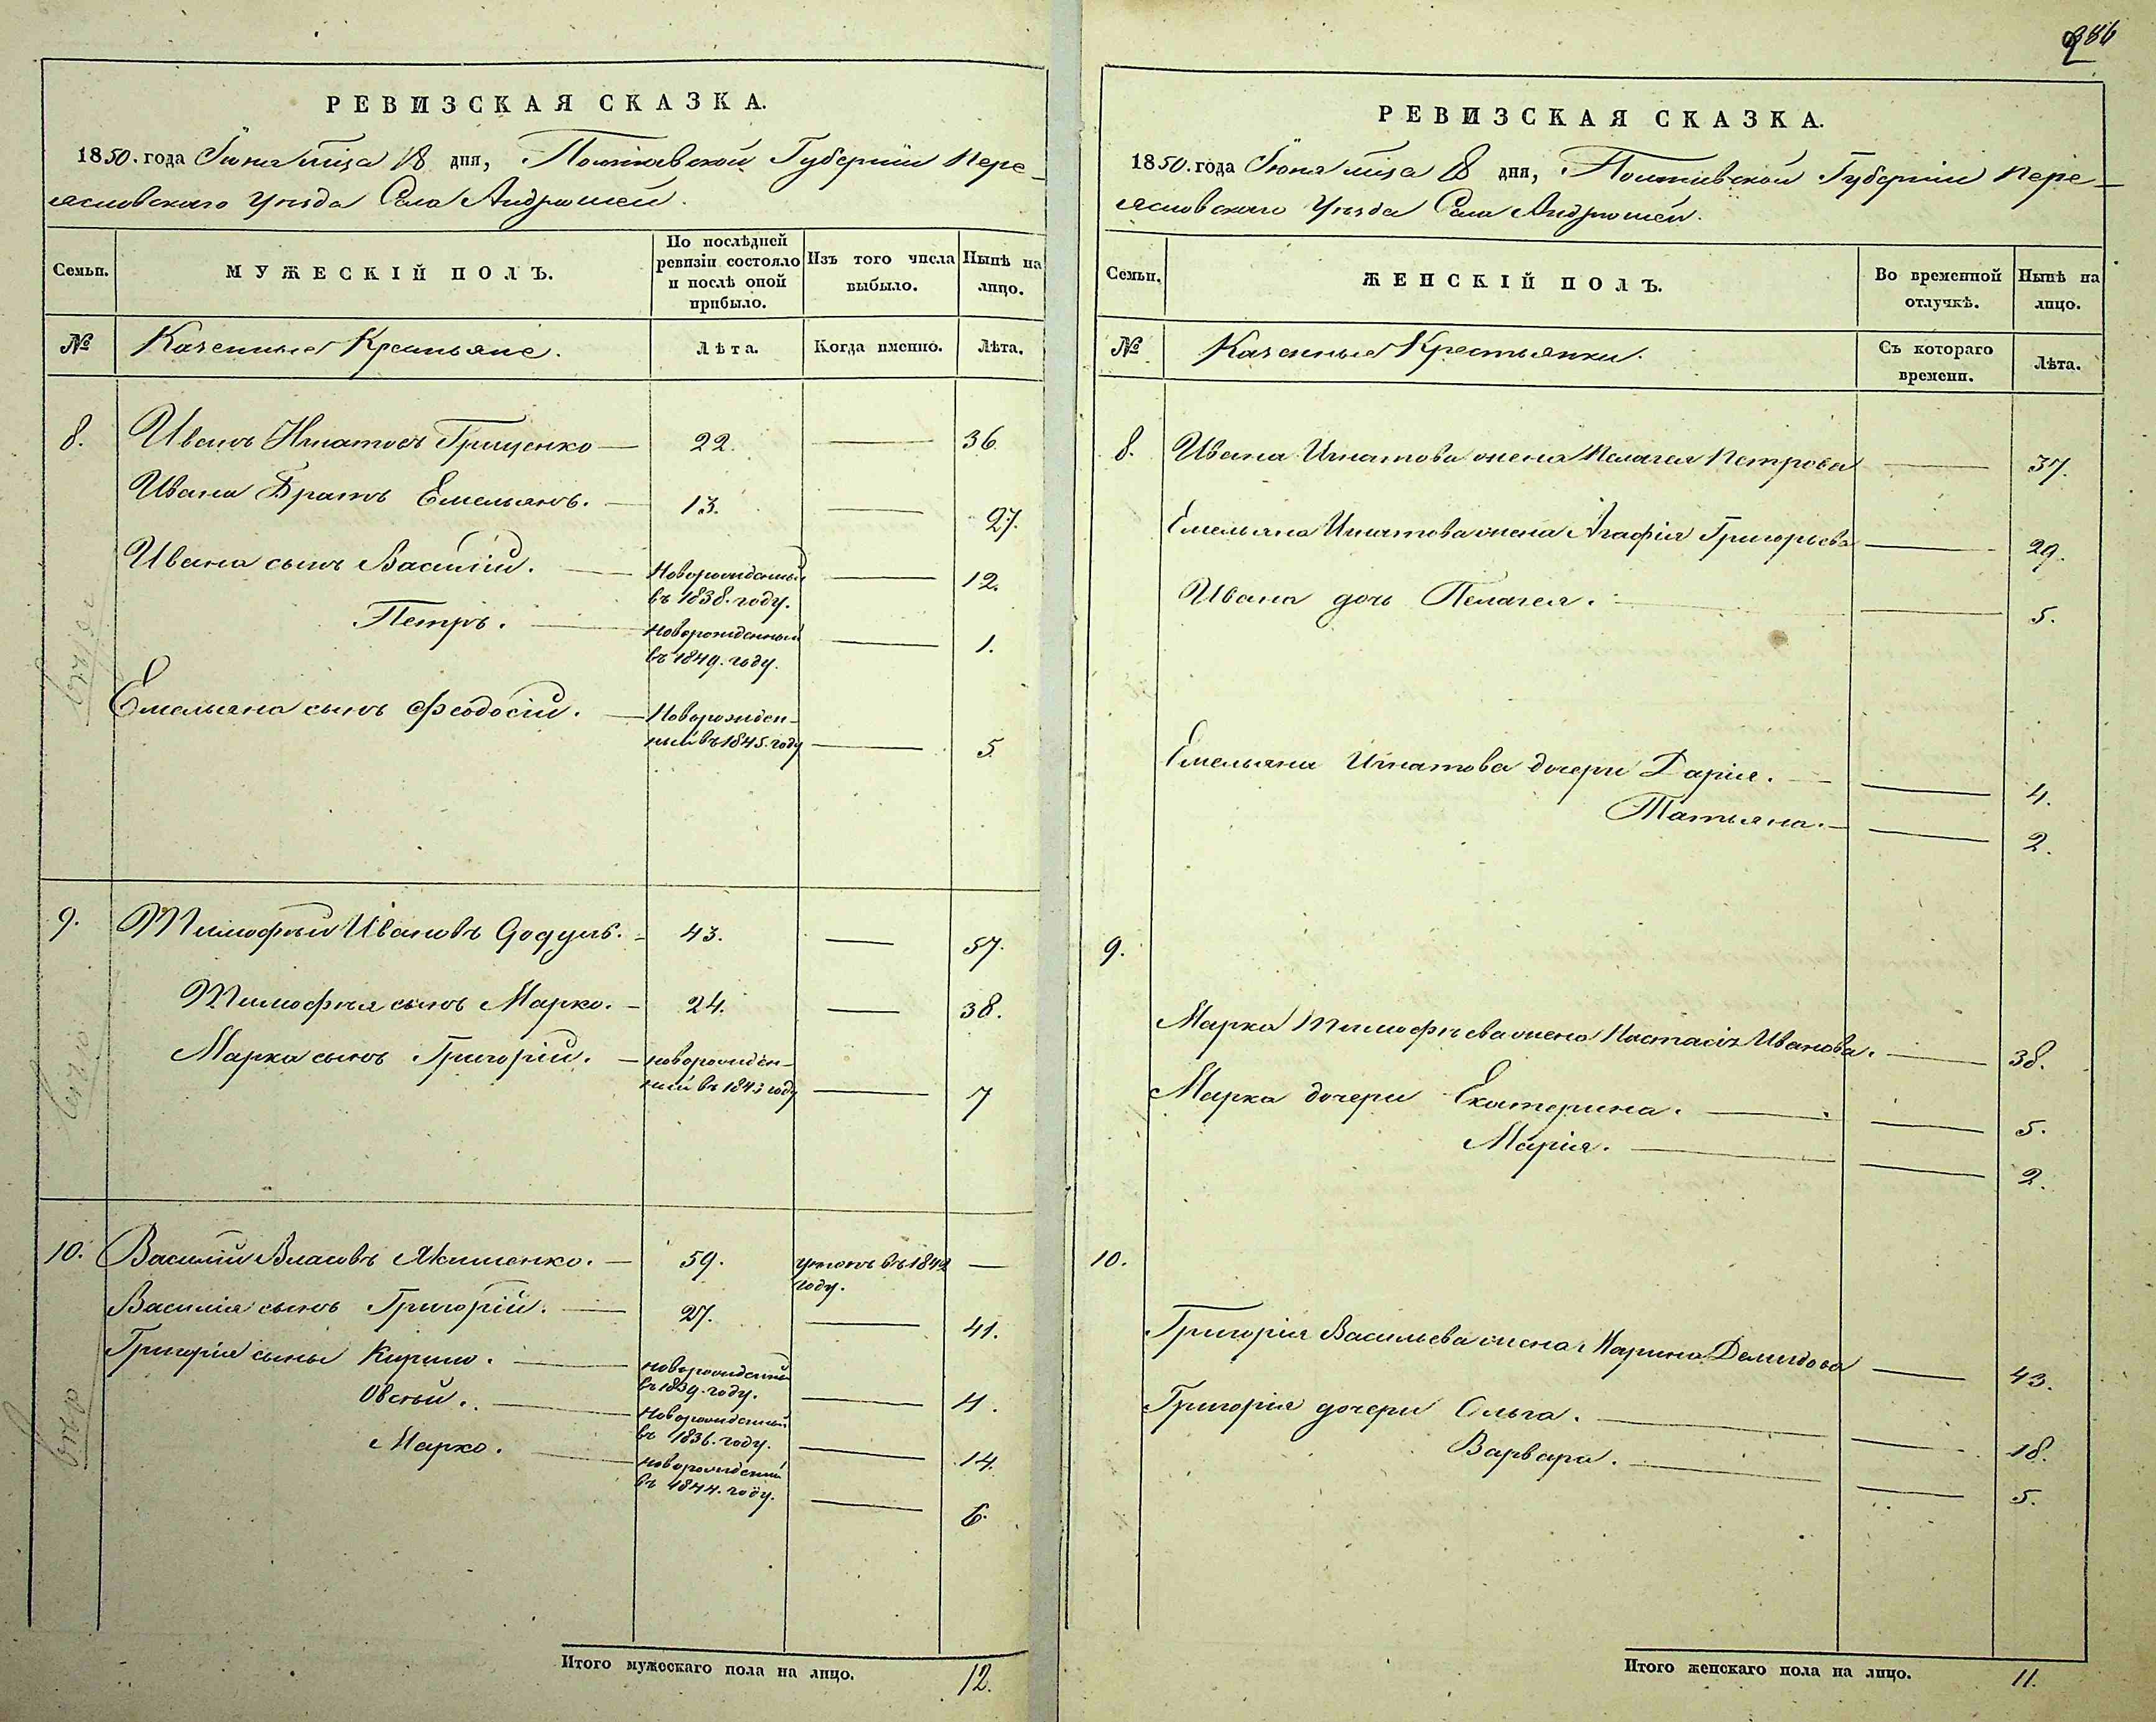 286
РЕВИЗСКАЯ СКАЗКА.
1850. года Іюня мца 18 дня, Полтавской Губерніи Пере-
яславскаго Уѣзда Села Андрюшей.
Семьи.
МУЖЕСКІЙ ПОЛЪ.
По послѣдней ревизіи состояло и послѣ оной прибыло.
Изъ того числа выбыло.
Нынѣ на лицо.
№
Казенные Крестьяне.
Лѣта.
Когда именно.
Лѣта.
8. Иванъ Игнатовъ Грищенко — 22. — 36
Ивана Братъ Емельянъ. — 13. — 27.
Ивана сынъ Василій. — Новорожденный въ 1838. году. — 12.
Петръ. — Новорожденный въ 1849. году. — 1.
Емельяна сынъ Феодосій. — Новорожден-
ный въ 1845. году — 5
9. Тимофѣй Ивановъ — 43. — 57.
Тимофѣя сынъ Марко. — 24. — 38.
Марка сынъ Григорій. — новорожден-
ный въ 1843 году — 7
10. Василій Власовъ Якименко. — 59. въ 1842 году. —
Василія сынъ Григорій. — 27. — 41.
Григорія сыны Кирило. — новорожденный въ 1839. году. — 11.
— Новорожденный въ 1836. году. — 14.
Марко. — новорожденный въ 1844. году. — 6.
Итого мужескаго пола на лицо. 12.
РЕВИЗСКАЯ СКАЗКА.
1850. года Іюня мца 18 дня, Полтавской Губерніи Пере-
яславскаго Уѣзда Села Андрюшей.
Семьи.
ЖЕНСКІЙ ПОЛЪ.
Во временной отлучкѣ.
Нынѣ на лицо.
№
Казенные Крестьянки.
Съ котораго времени.
Лѣта.
8. Ивана Игнатова жена Пелагея Петрова — 37.
Емельяна Игнатова жена Агафія Григорьева — 29.
Ивана дочь Пелагея. — 5.
Емельяна Игнатова дочери Дарія. — 4.
Татьяна. — 2.
9.
Марка Тимофѣева жена Настасія Иванова. — 38.
Марка дочери Екатерина. — 5.
Марія. — 2.
10.
Григорія Васильева жена Марина Демидова — 43.
Григорія дочери Ольга. — 18.
Варвара. — 5.
Итого женскаго пола на лицо. 11.